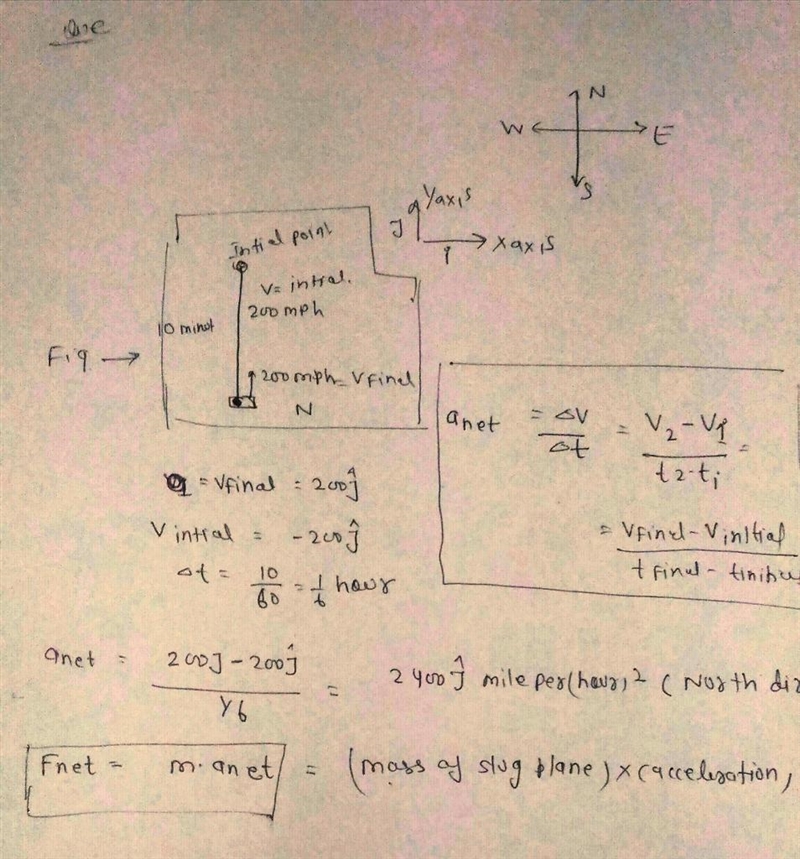 N
W E
S
Y axis
J
x axis
Intial point
V= intral.
200 mph
10 minut
Fig →
200 mph = Vfinel
N
anet = ΔV / Δt = V2 - V1 / t2-ti =
= Vfinel - Vinitial / t final -
= Vfinal = 200ĵ
V intral = -200ĵ
Δt = 10/60 = 1/6 hour
anet = 200J - 200ĵ / Y6 = 2400ĵ mile per (hour)2 ( North
Fnet = m. anet = (mass of slug plane) x (acceleration,